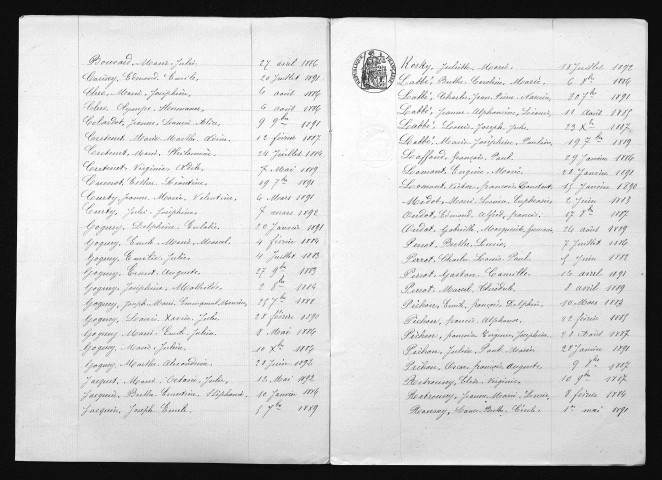 Boucard, Marie Julie 27 avril 1886
Cauzey, Edmond Emile 20 Juillet 1891
Clerc, Marie Joséphine 6 août 1886
Clerc, Olympe Hermance 6 août 1886
Colardot, Jeanne Louise 9 9bre 1891
Cretenet Marie Marthe 12 février 1887
Cretenet, Marie Philomène 24 Juillet 1884
Cretenet, Virginie 7 Mai 1889
Cuenot, Léontine 19 7bre 1891
Curty, Jeanne Marie, Valentine 6 Mars 1891
Curty, Julie Joséphine 7 mars 1892
Goguey, Delphine Eulalie 20 Janvier 1891
Goguey, Emile Marie Marcel 4 février 1884
Goguey, Emelie Julie 4 Juillet 1883
Goguey, Ernest Auguste 27 9bre 1883
Goguey, Joséphine Mathilde 2 8bre 1884
Goguey, Joseph Marie Emmanuel 28 7bre 1888
Goguey, Louis Xavier Jules 28 février 1890
Goguey, Marie Emile Julien 8 Mai 1886
Goguey, Marie Julien 10 Xbre 1884
Goguey, Marthe Alexandrine 20 Juin 1892
Jacquet, Marie Octavie, Julie 12 Mai 1892
Jacquin, Berthe Ernestine Stéphanie 10 Janvier 1884
Jacquin, Joseph Emile 5 7bre 1889
Juliette Marie 13 Juillet 1892
Labbé, Berthe Caroline, Marie 6 8bre 1884
Labbé, Charles Jean Pierre 30 7bre 1891
Labbé, Jeanne Alphonsine 11 Août 1885
Labbé, Louis Joseph Jules 23 Xbre 1887
Labbé, Marie Joséphine Pauline 19 7bre 1889
Laffond, françois Paul 29 Janvier 1886
Lomont, Eugène Marie 28 Janvier 1891
Lomont, Victor françois Constant 15 Janvier 1890
Midol, Marie Louise 2 Juin 1883
Oudot, Edmond Alfred, francis 17 8bre 1887
Oudot, Gabrielle Marguerite Jeanne 26 août 1889
Perrot, Berthe Louise 7 Juillet 1886
Perrot, Charles Louis Paul 5 Juin 1888
Perrot, Gaston Camille 16 avril 1891
Perrot, Marcel 8 avril 1889
Pichon, Emile françois Delphin 10 Mars 1884
Pichon, francis Alphonse 22 février 1885
Pichon, Eugénie Joséphine 28 Août 1887
Pichon, Julien Paul Marie 20 Janvier 1891
Pichon, Oscar françois Auguste 9 8bre 1887
Retrouvey, Elise Virginie 10 9bre 1887
Retrouvey, Jeanne Marie Louise 8 février 1884
Berthe Cécile 1er mai 1891